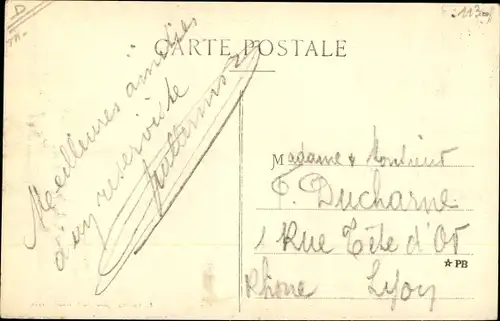 CARTE POSTALE
Meilleures amitiés
d'un réserviste
Madame & Monsieur
P. Ducharne
1 Rue Tête d'Or
Rhône Lyon
☆ PB